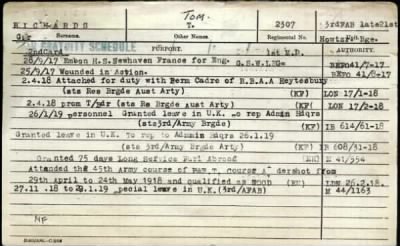 RICHARDS TOM. 2307 3rdFAB late21st
Gnr T. Howtzr Bge.
Surname. Other Names. Regimental No.
SCHEDULE
2ndCard PURPORT. 1st M.D. AUTHORITY.
28/9/17 Embon H.S. Newhaven France for Eng. G.S.W.LUG= BEFO41/7-17
25/9/17 Wounded in Action. BEFO 41/8-17
2.4.18 Attached for duty with Perm Cadre of R.B.A.A Heytesbury
(sts Res Brgde Aust Arty) (KP) LON 17/1-18
2.4.18 prom T/Bdr (sts Res Brgde Aust Arty) (KP) LON 17/2-18
26/1/19 personnel Granted leave in U.K. to rep Admin Hdqrs
(sts3rd/Army Brgde) (KF) IB 614/61-18
Granted leave in U.K. To rep to Admin Hdqrs 26.1.19
(sts3rd/Army Brgde Arty) (KF) IB 608/31-18
Granted 75 days Long Service Furl Abroad M 41/554
Attended the 45th Army course of course dershot from
29th April to 24th May 1918 and qualified as GOOD LDN 26.2.18.
27.11.18 to 29.1.19 special leave in U.K.(3rd/AFAB) M 44/1163
MF